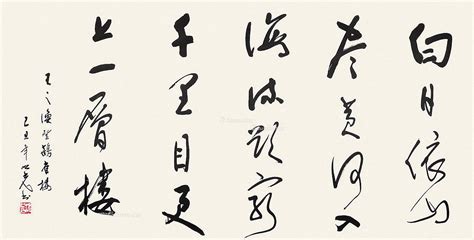 白日依山
尽黄河入
海流欲窮
千里目更
上一層楼
王之涣登鹳雀楼
己丑年书